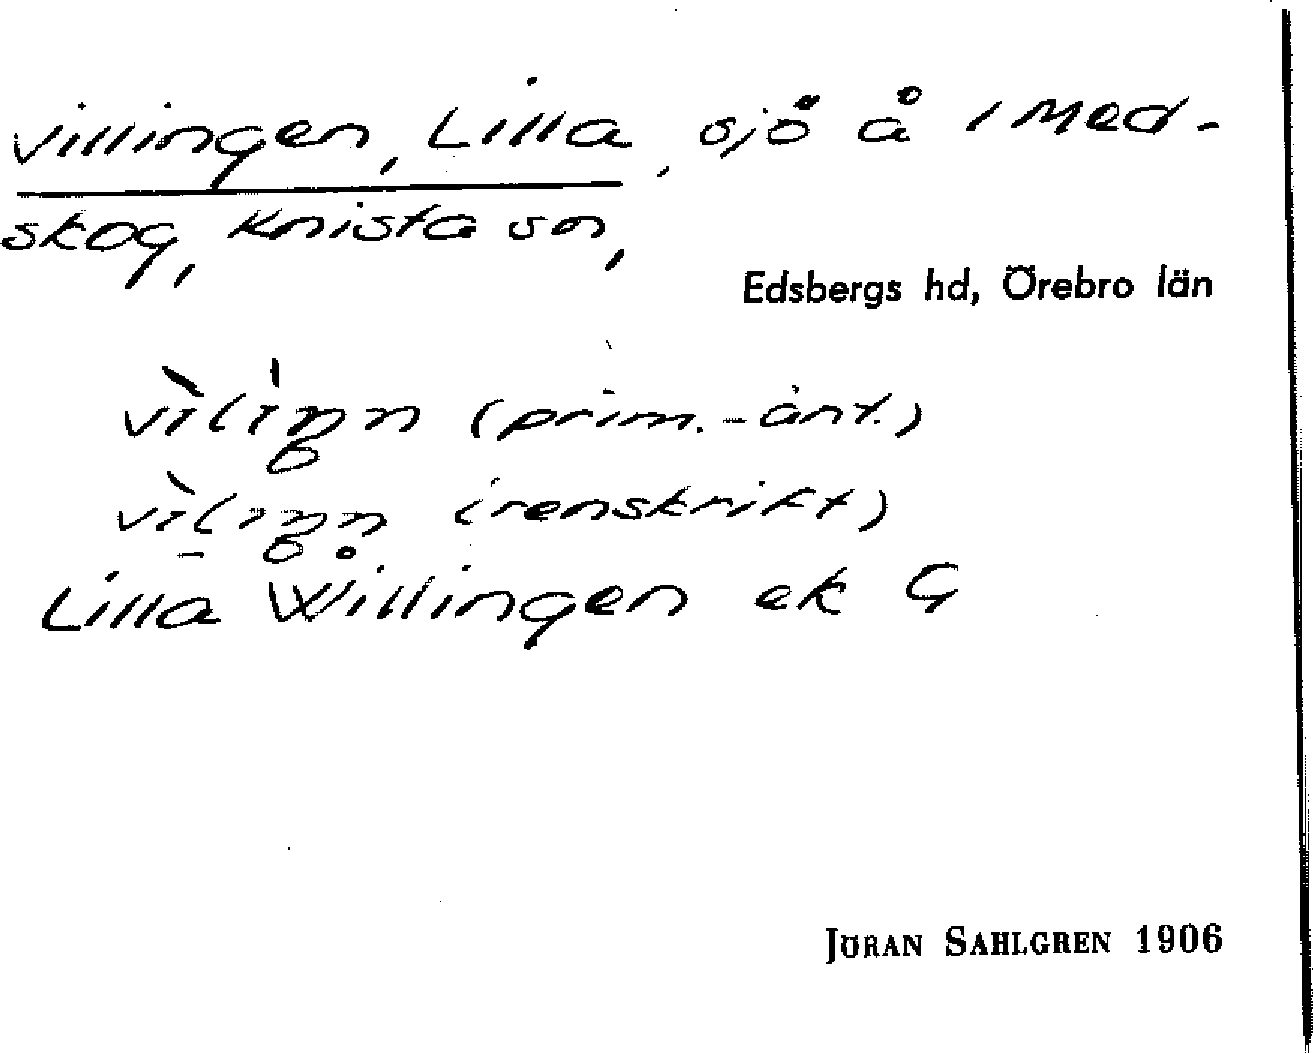 Villingen, Lilla, sjö å 1 Med-
skog, Knista sn,
Edsbergs hd, Örebro län
(prim.-ant.)
(renskrift)
Lilla Willingen ek G
JÖRAN SAHLGREN 1906